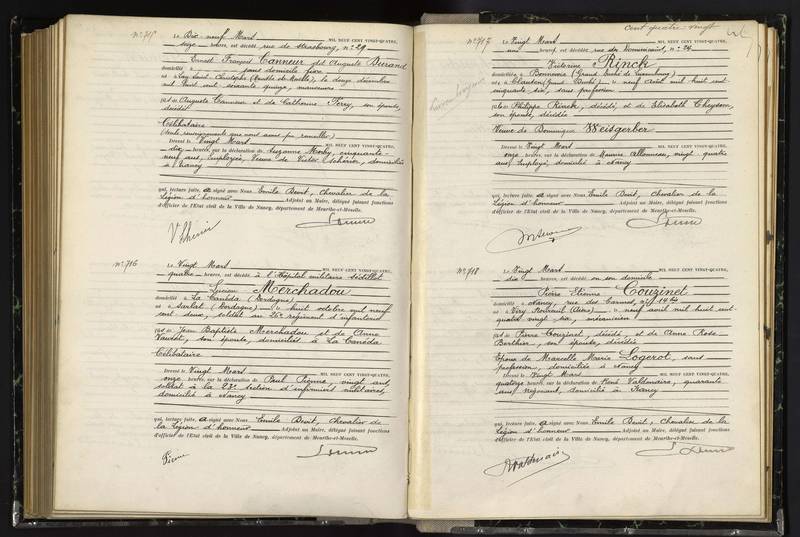 N° 715
Le Dix neuf Mars MIL NEUF CENT VINGT-QUATRE,
seize heures, est décédé rue de Strasbourg, n° 29
Ernest François Canneur dit Auguste Durand
domicilié sans domicile fixe
né à Lay-Saint-Christophe (Meurthe-et-Moselle), le douze décembre
mil huit cent soixante quinze, manœuvre
fils de Auguste Canneur et de Catherine Ferry, son épouse,
décédés
Célibataire
Dressé le Vingt Mars MIL NEUF CENT VINGT-QUATRE,
dix heures, sur la déclaration de Suzanne cinquante-
neuf ans, employée, Veuve de Victor domiciliée
à Nancy
qui, lecture faite, a signé avec Nous Emile Chevalier de la
Légion d'honneur Adjoint au Maire, délégué faisant fonctions
d'officier de l'Etat civil de la Ville de Nancy, département de Meurthe-et-Moselle.
N° 716
Le Vingt Mars MIL NEUF CENT VINGT-QUATRE,
quatre heures, est décédé à l'Hôpital militaire Sédillot
Lucien Merchadou
domicilié à La Canéda (Dordogne)
né à Sarlat (Dordogne) le huit octobre mil neuf
cent deux, soldat au 26e régiment d'infanterie
fils de Jean Baptiste Merchadou et de Anne
son épouse, domiciliés à La Canéda
Célibataire
Dressé le Vingt Mars MIL NEUF CENT VINGT-QUATRE,
onze heures, sur la déclaration de Paul Pienne, vingt ans,
soldat à la section d'infirmiers militaires,
domicilié à Nancy
qui, lecture faite, a signé avec Nous Emile Chevalier de
la Légion d'honneur Adjoint au Maire, délégué faisant fonctions
d'officier de l'Etat civil de la Ville de Nancy, département de Meurthe-et-Moselle.
Cent quatre vingt
N° 717
Le Vingt Mars MIL NEUF CENT VINGT-QUATRE,
une heure, est décédée rue n° 26
Victorine Rinck
domiciliée à Bonnevoie (Grand Duché de Luxembourg)
née à (Grand Duché) le neuf août mil huit cent
cinquante six, sans profession
fille de Philippe Rinck, décédé, et de Elisabeth
son épouse, décédée
Veuve de Dominique Weisgerber
Dressé le Vingt Mars MIL NEUF CENT VINGT-QUATRE,
onze heures, sur la déclaration de Maurice vingt quatre
ans, employé, domicilié à Nancy
qui, lecture faite, a signé avec Nous Emile Chevalier de la
Légion d'honneur Adjoint au Maire, délégué faisant fonctions
d'officier de l'Etat civil de la Ville de Nancy, département de Meurthe-et-Moselle.
N° 718
Le Vingt Mars MIL NEUF CENT VINGT-QUATRE,
dix heures, est décédé en son domicile
Pierre Etienne Couzinet
domicilié à Nancy, rue des Carmes,
né à Very neuf avril mil huit cent
quatre vingt
fils de Pierre Couzinet, décédé, et de Anne Rose
Berthier, son épouse, décédée
Epoux de Marcelle Marie Logerot, sans
profession, domiciliée à Nancy
Dressé le Vingt Mars MIL NEUF CENT VINGT-QUATRE,
quatorze heures, sur la déclaration de René Valdenaire, quarante
ans, négociant, domicilié à Nancy
qui, lecture faite, a signé avec Nous Emile Chevalier de la
Légion d'honneur Adjoint au Maire, délégué faisant fonctions
d'officier de l'Etat civil de la Ville de Nancy, département de Meurthe-et-Moselle.